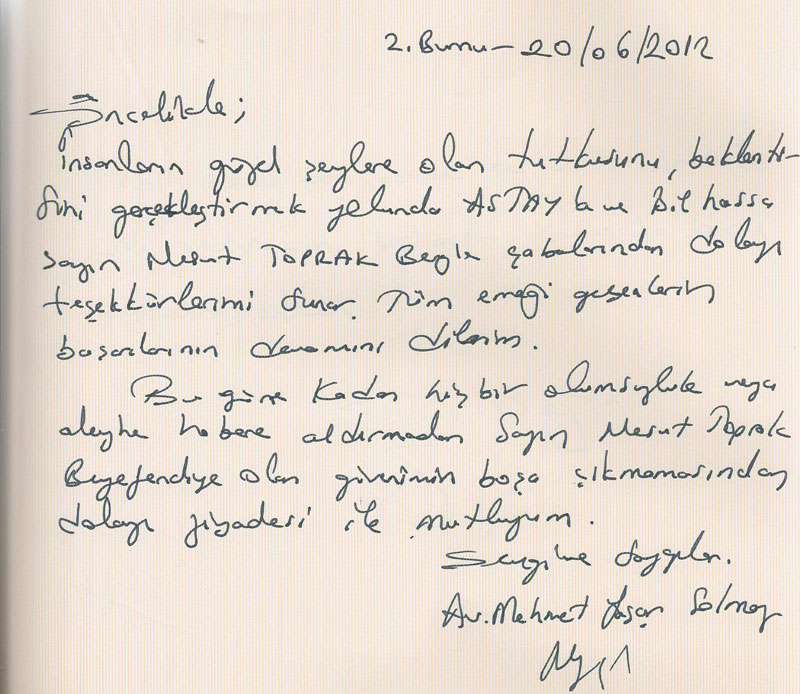 2. Burnu - 20/06/2012
Öncelikle;
insanların güzel şeylere olan tutkusunu, beklenti-
sini gerçekleştirmek yolunda ASTAY'a ve Bilhassa
Sayın Mesut TOPRAK Bey'in çabalarından dolayı
teşekkürlerimi sunar. Tüm emeği geçenlerin
başarılarının devamını dilerim.
Bu güne kadar hiçbir olumsuzluk veya
aleyhe habere aldırmadan Sayın Mesut Toprak
Beyefendiye olan güvenimin boşa çıkmamasından
dolayı ziyadesi ile mutluyum.
Sevgi ve saygılar.
Av. Mehmet Yaşar